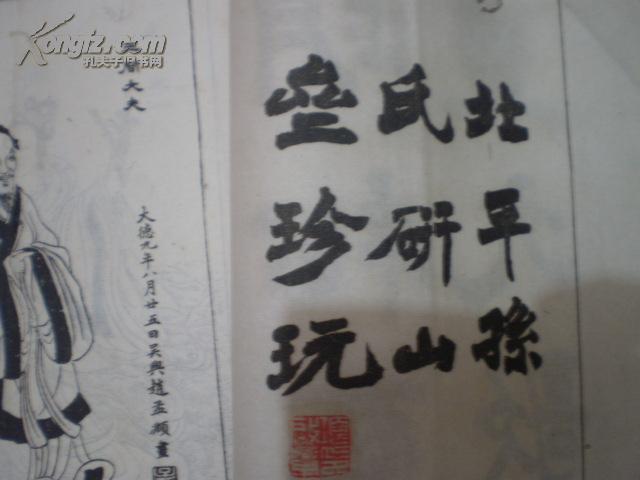 北平孫
氏研山
壑珍玩
大德元年八月廿五日吳興趙孟頫畫
大夫
Kongfz.com
孔夫子旧书网